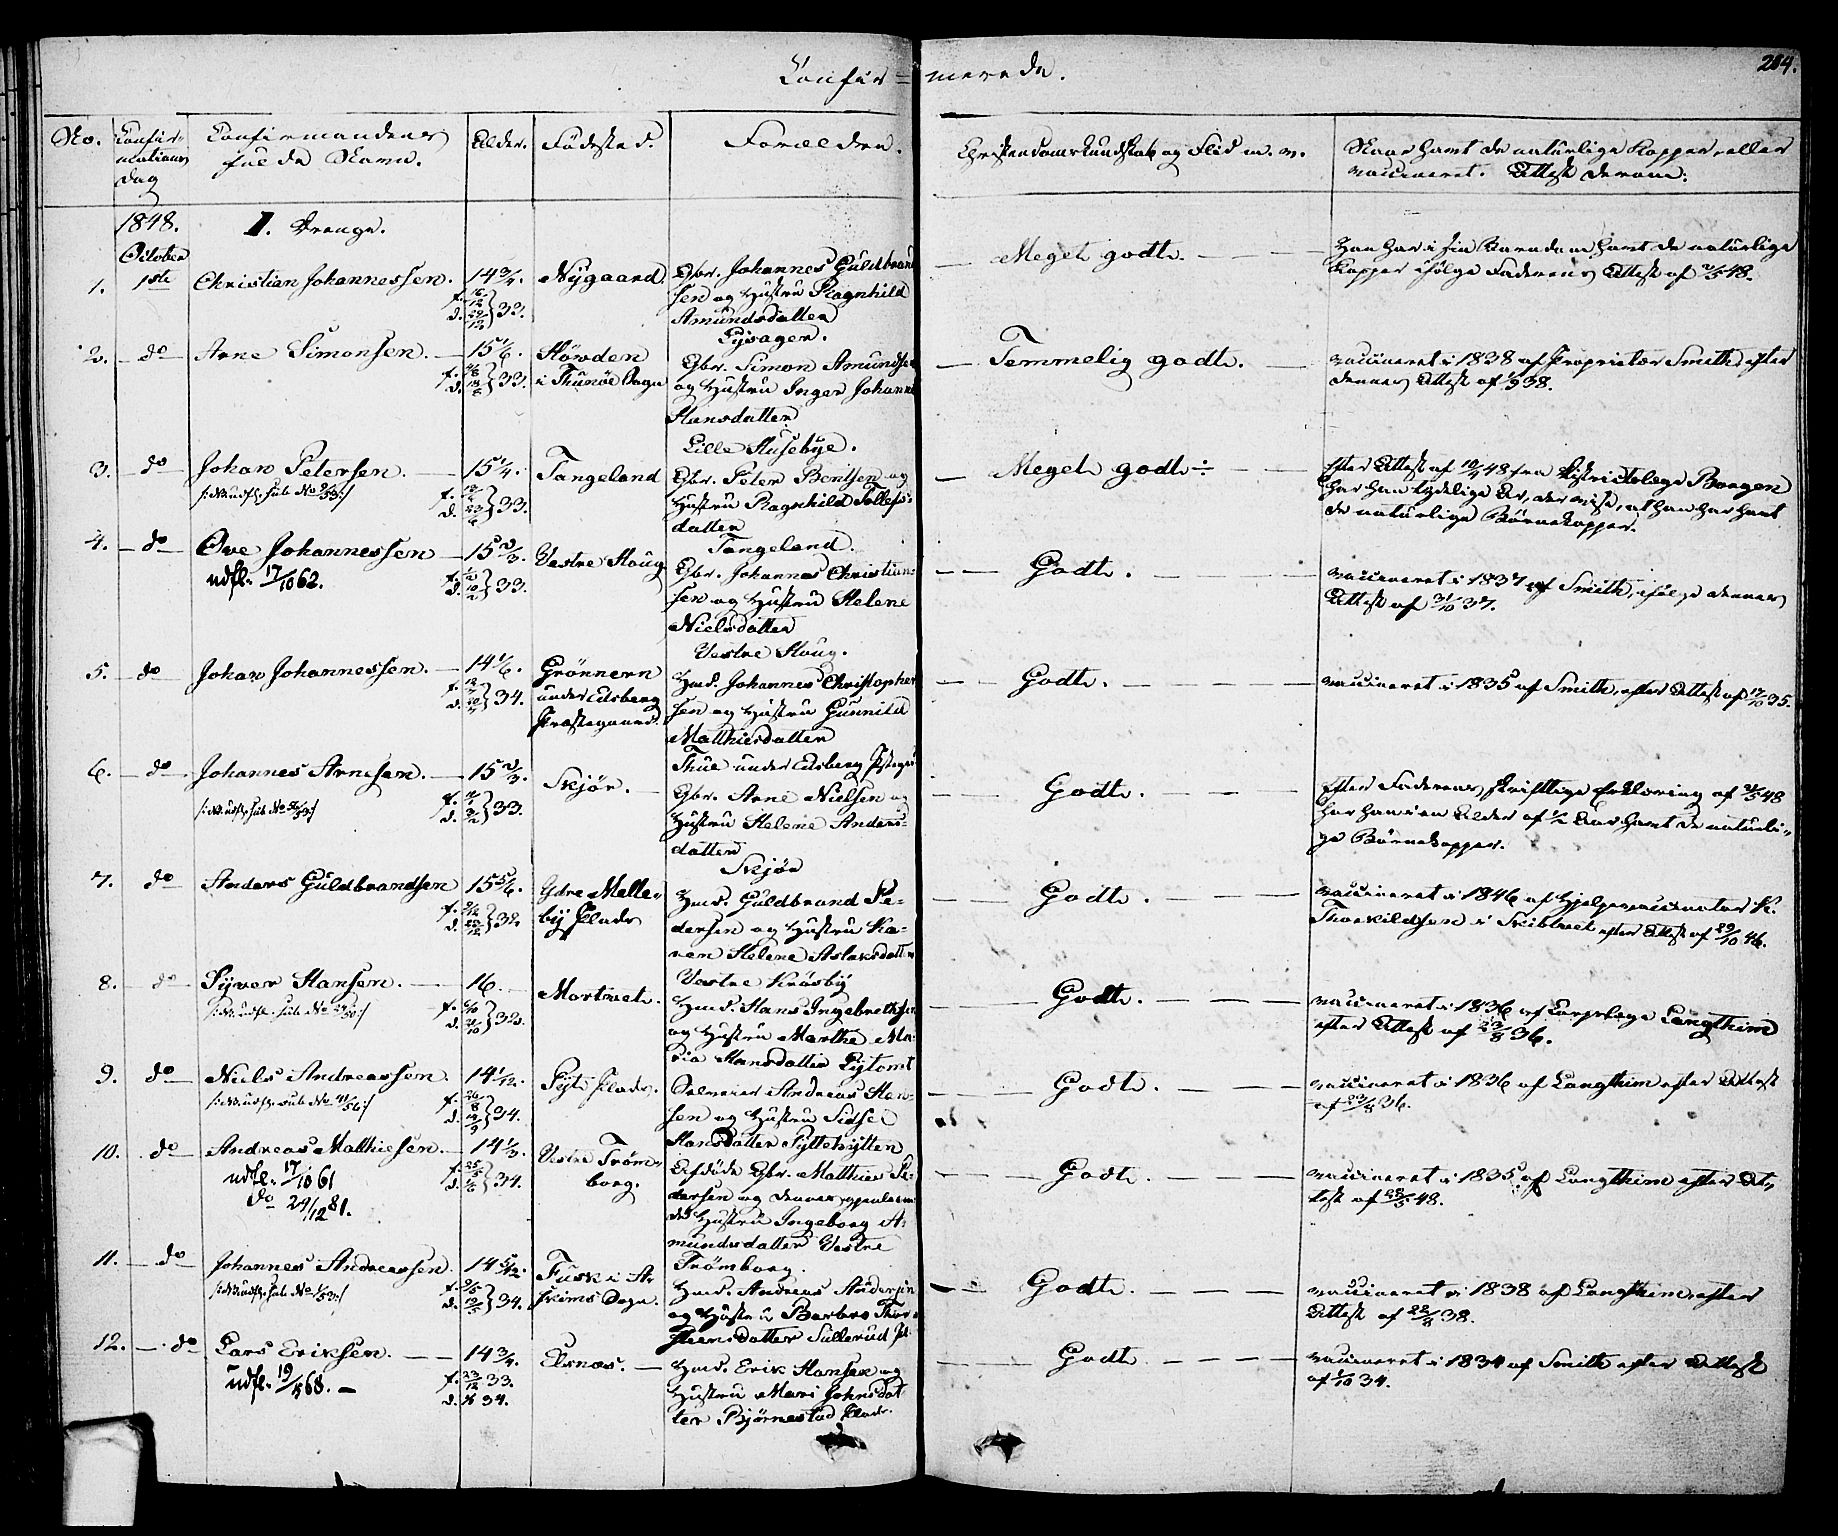 Confir=merede.
204.
No.
Confir-
mations
dag
Confirmandens
fulde Navn.
Alder.
Fødested.
Forældre.
Christendomskundskab og Flid m. m.
Naar havt de naturlige Kopper eller
vaccineret. Attest derom.
1848.
October
1ste
I. Drenge.
1.
Christian Johannessen.
14 3/4.
f. 16/12
d. 29/12 } 33.
Nygaard
Gbr. Johannes Guldbrand
sen og Hustru Ragnhild
Amundsdatter
Lysager.
Meget godt.
Han har i sin Barndom havt de naturlige
Kopper ifølge Faderens Attest af 48.
2. do
Arne Simonsen.
15 1/6.
33.
Høvden
i Thunøe Sogn
Gbr. Simon Amundsen
og Hustru Inger Johanne
Hansdatter
Lille Husebye.
Temmelig godt.
vaccineret i 1838 af Proprietær Smith, efter
dennes Attest af 38.
3. do
Johan Petersen.
15 1/4.
33.
Tangeland
Gbr. Peter Bentsen og
Hustru Ragnhild Tollefs-
datter
Tangeland.
Meget godt ÷
Efter Attest af 48 fra Districtslæge Borgen
har han tydelige Ar, der vise, at han har havt
de naturlige Børnekopper.
4. do
Ove Johannessen
udfl. 17/10 62.
15 2/3.
33.
Vestre Houg
Gbr. Johannes Christian-
sen og Hustru Helene
Nielsdatter
Vestre Houg.
Godt.
vaccineret i 1837 af Smith, ifølge dennes
Attest af 31/10 37.
5. do
Johan Johannessen.
14 1/6.
34.
Grönnern
under Edsberg
Præstegaard.
Hmd. Johannes Christopher
sen og Hustru Gunnild
Matthiesdatter
Thue under Edsberg Pstegrd
Godt.
vaccineret i 1835 af Smith, efter Attest af 17/10 35.
6. do
Johannes Arnesen.
15 2/3.
33.
Skjør.
Gbr. Arne Nielsen og
Hustru Helene Anders-
datter
Skjør
Godt.
Efter Faderens skriftlige Erklæring af 48
har han i en Alder af 1/2 Aar havt de naturli-
ge Børnekopper.
7. do
Anders Guldbrandsen
15 5/6.
32
Ydre Melle-
by Plads
Hmd. Guldbrand Pe-
dersen og Hustru Ka-
ren Helene Aslaksdatter
Vestre Krosby
Godt.
vaccineret i 1846 af Hjelpevaccinatør K.
Thorkildsen i Skibtvet efter Attest af 29/10 46.
8. do
Syver Hansen.
16
32.
Mortvet.
Hmd. Hans Ingebrethsen
og Hustru Marthe Ma-
ria Hansdatter Lytomt
Godt.
vaccineret i 1836 af Corpslæge Langthim
efter Attest af 23/8 36.
9. do
Niels Andreassen.
14 1/12.
34.
Lyt Plads.
Selveier Andreas Han-
sen og Hustru Sidsel
Hansdatter Lyttehytten
Godt.
vaccineret i 1836 af Langthim efter Attest
af 23/8 36.
10. do
Andreas Matthiesen.
udfl. 17/10 61
do 24/12 81.
14 1/3.
f. 25/5
34.
Vestre Tröm-
borg.
Afdöde Gbr. Matthies Pe-
dersen og dennes gjenleven
de Hustru Ingeborg A-
mundsdatter Vestre
Trömborg.
Godt.
vaccineret i 1835 af Langthim efter At-
test af 48.
11. do
Johannes Andreassen.
14 5/12.
34.
Fusk i As-
kims Sogn.
Hmd. Andreas Andersen
og Hustru Barbro Thor-
steensdatter Sullerud
Godt.
vaccineret i 1838 af Langthim, efter
Attest af 22/8 38.
12. do
Lars Eriksen.
udfl. 68.
14 3/4.
f. 23/12 33.
d. 34.
Elsnæs.
Hmd. Erik Hansen og
Hustru Mari Johnsdat
ter Bjørnestad Plads.
Godt.
vaccineret i 1834 af Smith efter Attest
af 34.